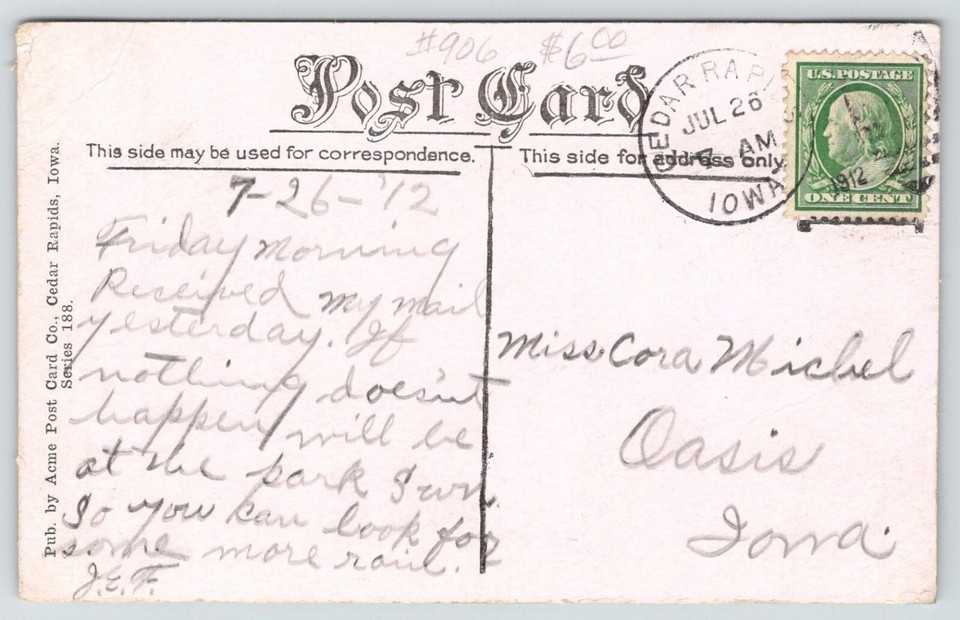 #906 $6.00
Post Card
This side may be used for correspondence.
This side for address only.
CEDAR RAPIDS
JUL 26
AM
1912
IOWA
U.S. POSTAGE
ONE CENT
7-26-'12
Friday Morning
Received my mail
yesterday. If
nothing doesn't
happen will be
at the park Sun.
So you can look for
some more rain.
J.E.F.
Miss Cora Michel
Oasis
Iowa.
Pub. by Acme Post Card Co., Cedar Rapids, Iowa.
Series 188.